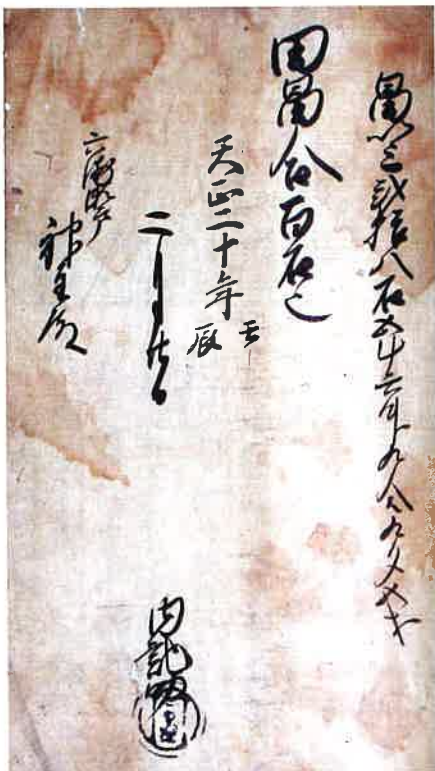 畠 弐拾八石五斗六升九合九夕五才
田畠合百石也
天正二十年 壬辰
二月
六浦瀬戸
神主殿
内記